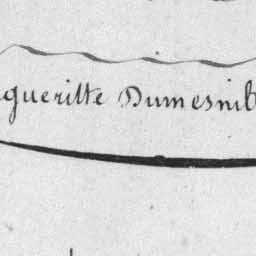 gueritte Dumesnil